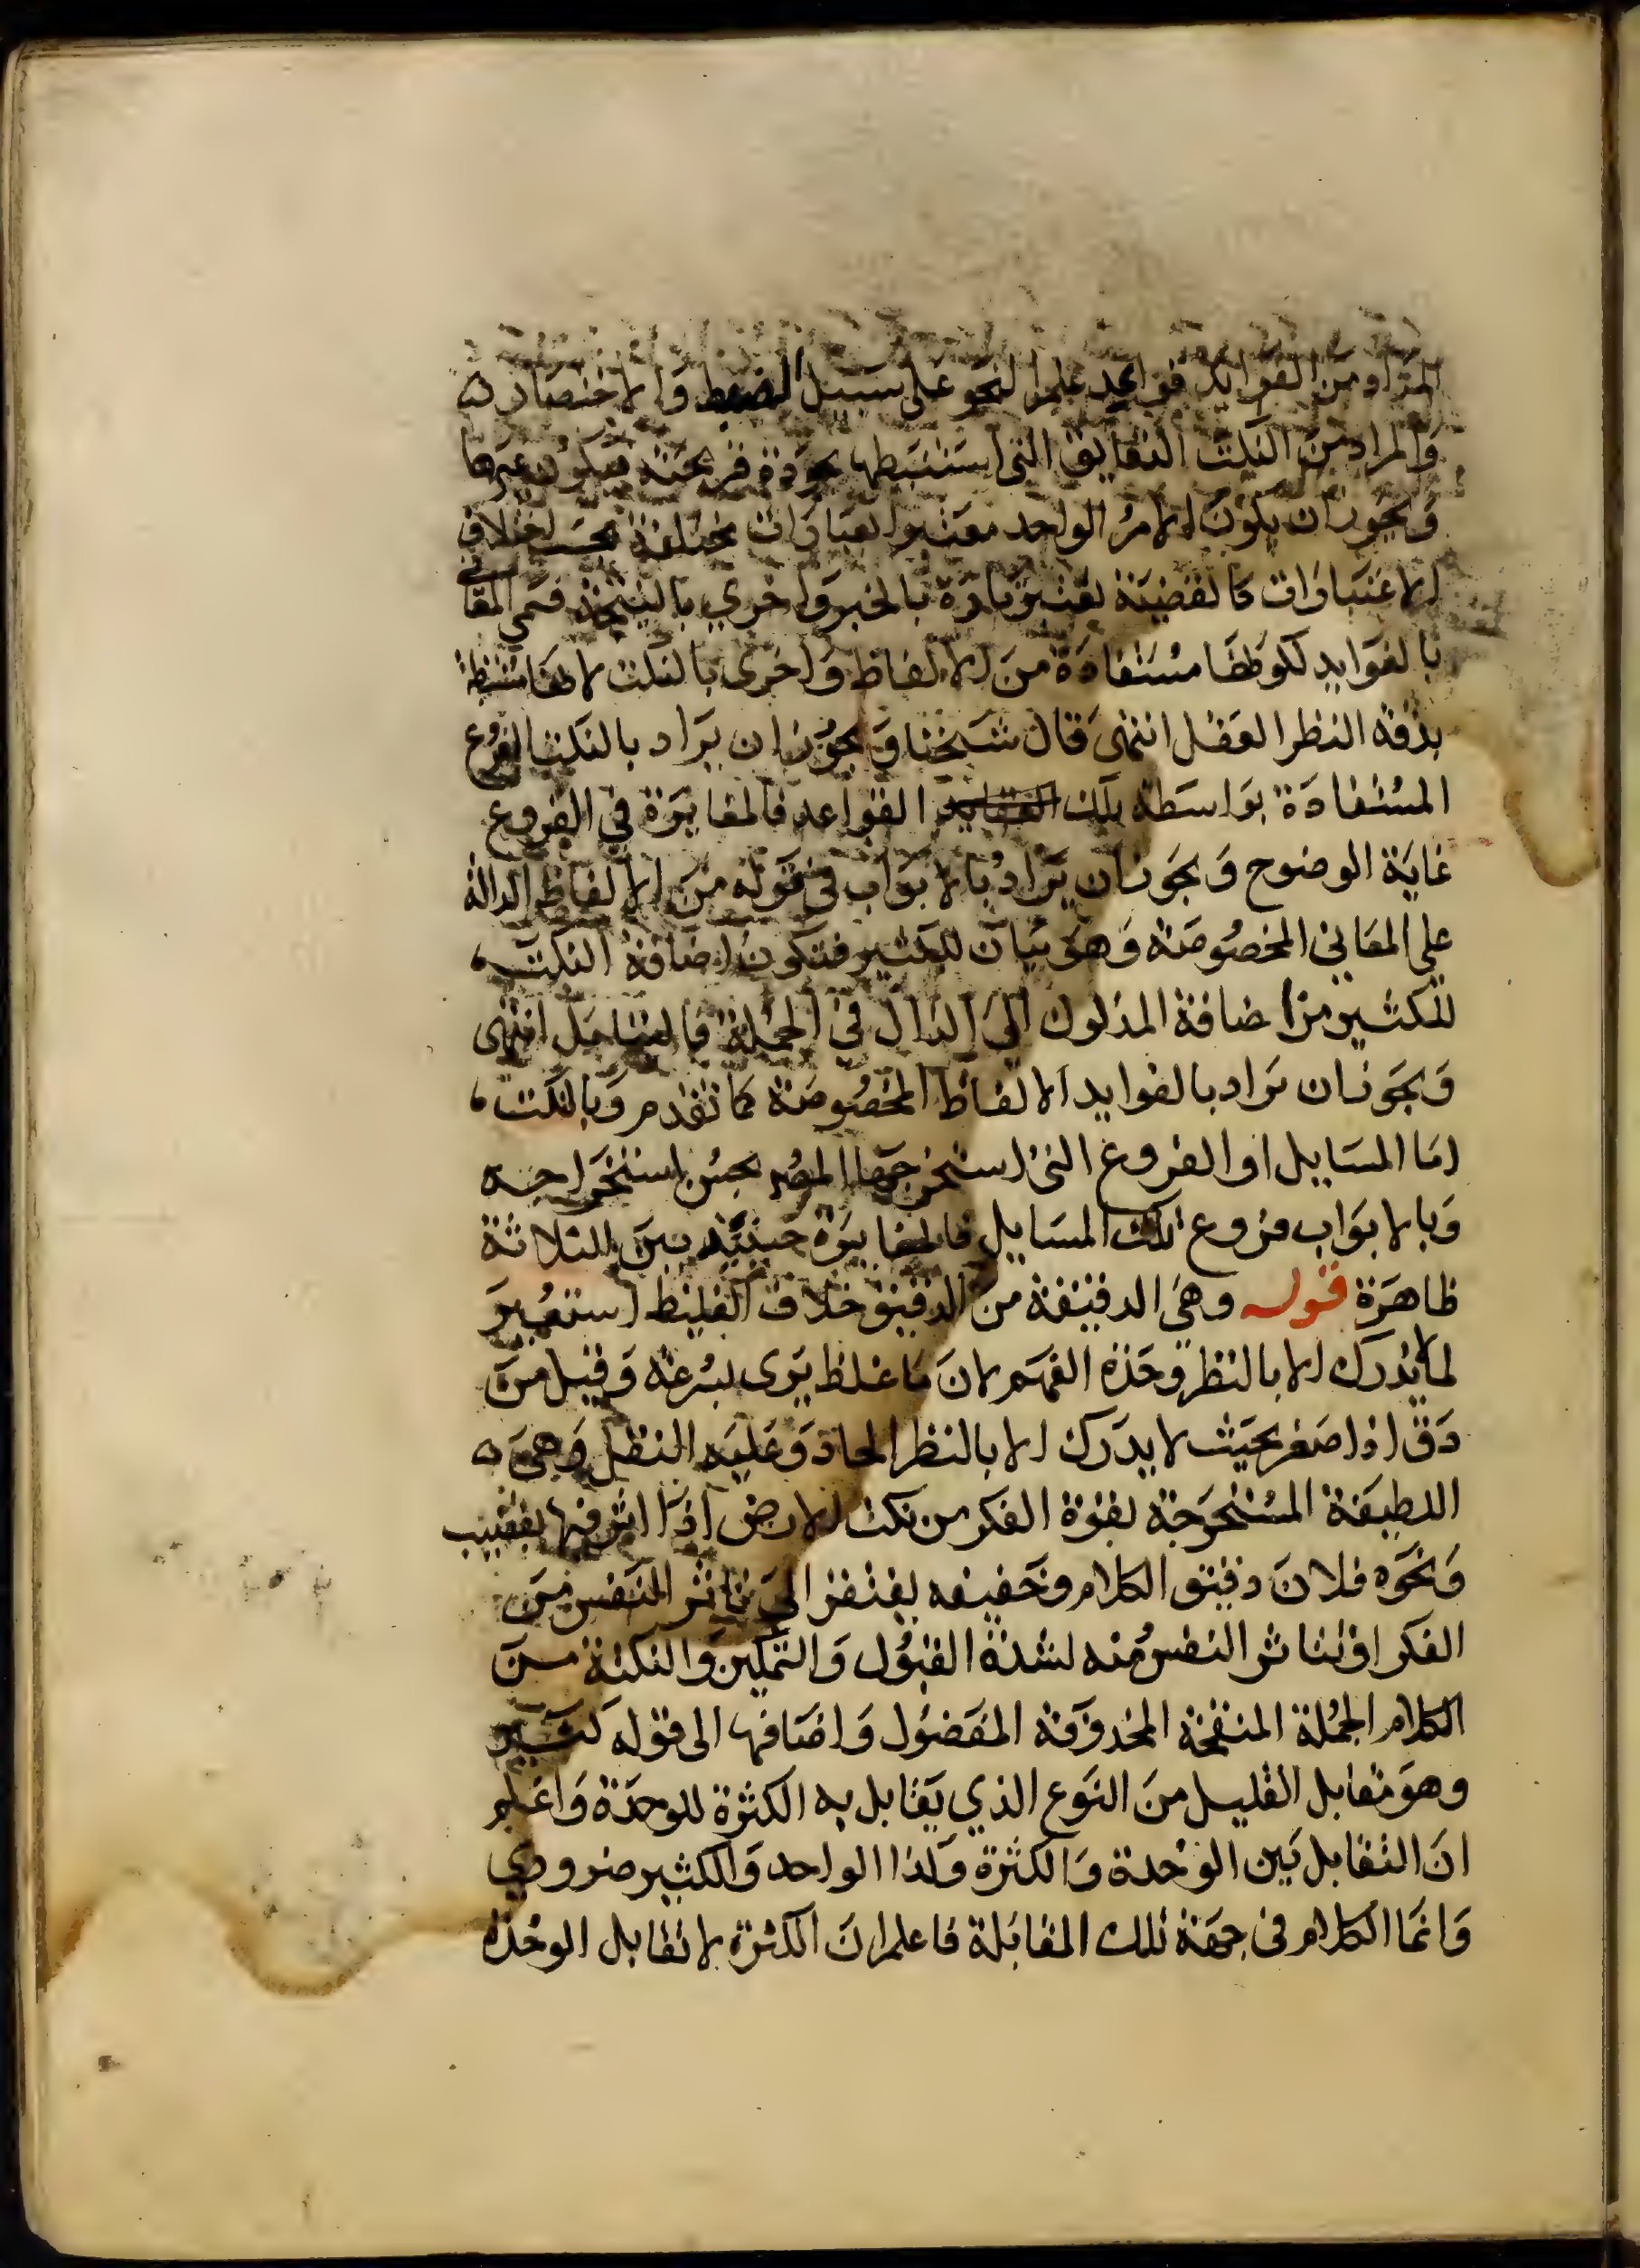 المراد من الفوايد قواعد علم النحو على سبيل الضبط والاختصار
والمراد من النكت الدقايق التي استنبطها بجودة قريحته فيكون غيرها
ويجوز ان يكون الامر الواحد معتبرا بعبارات مختلفة بحسب اختلاف
الاعتبارات كالقضية تعتبر تارة بالخبر واخري بالنتيجة فسمي المعاني
بالفوايد لكونها مستفادة من الالفاظ واخرى بالنكت لانها مستنبطة
بدقة النظر العقل انتهى قال شيخنا ويجوز ان يراد بالنكت الفروع
المستفادة بواسطة تلك القواعد فالمغايرة في الفروع
غاية الوضوح ويجوز ان يراد بالابواب في قوله من الالفاظ الدالة
على المعاني المخصوصة وهو بيان للكثير فتكون اضافة النكت
للكثير من اضافة المدلول الى الدال في الجملة فالتامل انتهى
ويجوز ان يراد بالفوايد الالفاظ المخصوصة كما تقدم وبالنكت
اما المسايل او الفروع التي استخرجها المص بحسن استخراجه
وبالابواب فروع تلك المسايل فالمغايرة حينئذ بين الثلاثة
ظاهرة قوله وهي الدقيقة من الدقيق خلاف الغليظ استعير
لما لا يدرك الا بالنظر وحدة الفهم لان ما غلظ يرى بسرعة وقيل من
دق اذا صغر بحيث لا يدرك الا بالنظر الحاد وعليه النظر وهي
اللطيفة المستخرجة بقوة الفكر من نكت الارض اذا اثر فيها بقضيب
ونحوه فلان دقيق الكلام وخفيفه يفتقر الى تاثر النفس من
الفكر او لتاثر النفس منه لشدة القبول والتمكين والنكتة من
الكلام الجملة المنقحة المحذوفة المفضول واضافها الى قوله كثير
وهو مقابل القليل من النوع الذي يقابل به الكثرة للوحدة واعلم
ان التقابل بين الوحدة والكثرة وكذا الواحد والكثير ضروري
وانما الكلام في جهة تلك المقابلة فاعلم ان الكثرة لا تقابل الوحدة